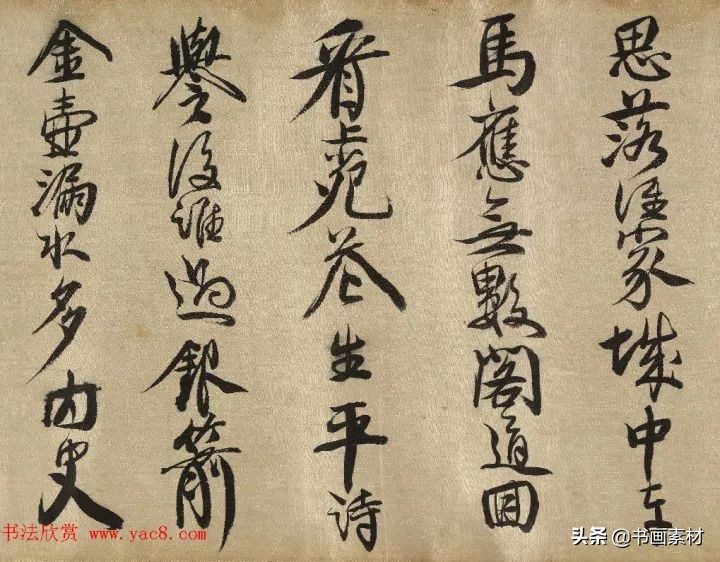 思落誰家城中車
馬應無數閣道回
看上苑花生平詩
譽復誰過銀箭
金壺漏水多内史
书法欣赏 www.yac8.com
头条 @书画素材